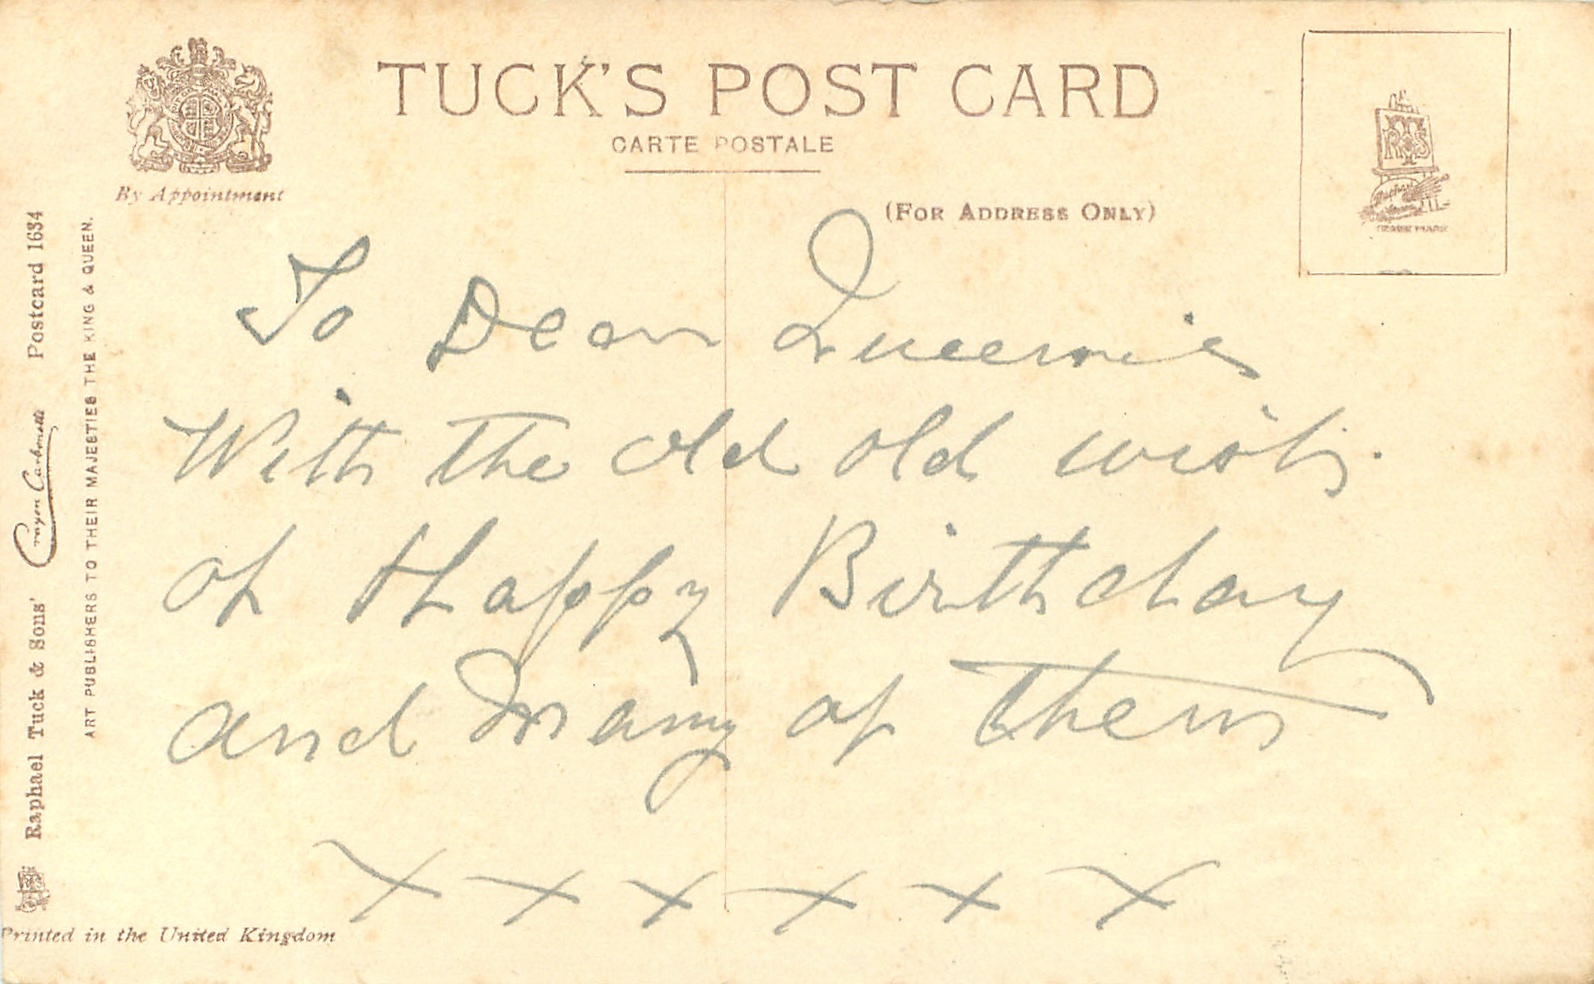 TUCK'S POST CARD
CARTE POSTALE
By Appointment
(FOR ADDRESS ONLY)
TRADE MARK
To Dear Queenie
With the old old wish
of Happy Birthday
and many of them
X X X X X X
Raphael Tuck & Sons' Crayon Carbonette Postcard 1634
ART PUBLISHERS TO THEIR MAJESTIES THE KING & QUEEN.
Printed in the United Kingdom